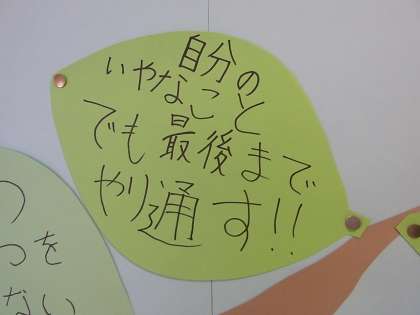 自分の
いやなこと
でも最後まで
やり通す!!
つ
つを
ない